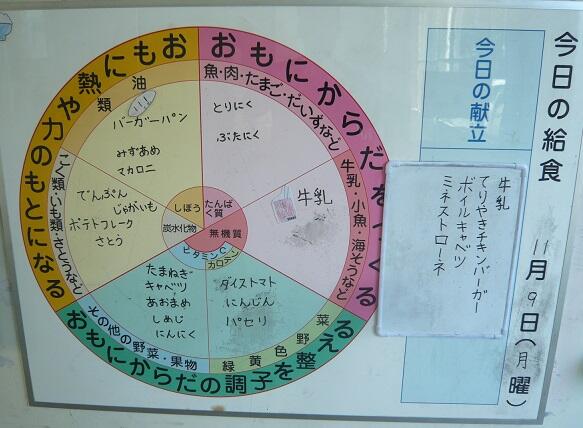 今日の給食
11月9日(月曜)
今日の献立
牛乳
てりやきチキンバーガー
ボイルキャベツ
ミネストローネ
おもにからだをつくる
魚・肉・たまご・だいずなど
とりにく
ぶたにく
牛乳・小魚・海そうなど
牛乳
おもに熱や力のもとになる
油類
バーガーパン
みずあめ
マカロニ
こく類・いも類・さとうなど
でんぷん
じゃがいも
ポテトフレーク
さとう
しぼう
たんぱく質
炭水化物
無機質
ビタミンC
カロテン
おもにからだの調子を整える
その他の野菜・果物
たまねぎ
キャベツ
あおまめ
しめじ
にんにく
緑黄色野菜
ダイストマト
にんじん
パセリ